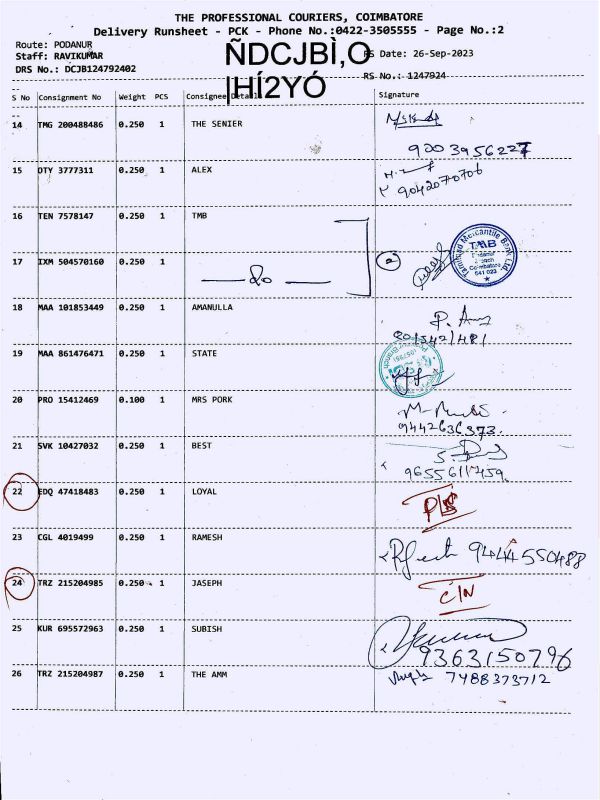 THE PROFESSIONAL COURIERS, COIMBATORE
Delivery Runsheet - PCK - Phone No.:0422-3505555 - Page No.:2
Route: PODANUR
Staff: RAVIKUMAR
DRS No.: DCJB124792402
ÑDCJBÌ,O
|HÍ2YÓ
RS Date: 26-Sep-2023
RS No.: 1247924
S No Consignment No Weight PCS Consignee Details Signature
14 TMG 200488486 0.250 1 THE SENIER
9003956227
15 OTY 3777311 0.250 1 ALEX
9042070706
16 TEN 7578147 0.250 1 TMB
Tamilnad Mercantile Bank Ltd
TMB
Coimbatore
641 023
17 IXM 504570160 0.250 1 —do— 2
18 MAA 101853449 0.250 1 AMANULLA
19 MAA 861476471 0.250 1 STATE
20 PRO 15412469 0.100 1 MRS PORK
9442636373.
21 SVK 10427032 0.250 1 BEST
22 EDQ 47418483 0.250 1 LOYAL
23 CGL 4019499 0.250 1 RAMESH 9444550488
24 TRZ 215204985 0.250 1 JASEPH
25 KUR 695572963 0.250 1 SUBISH
9363150796
26 TRZ 215204987 0.250 1 THE AMM 7488373712